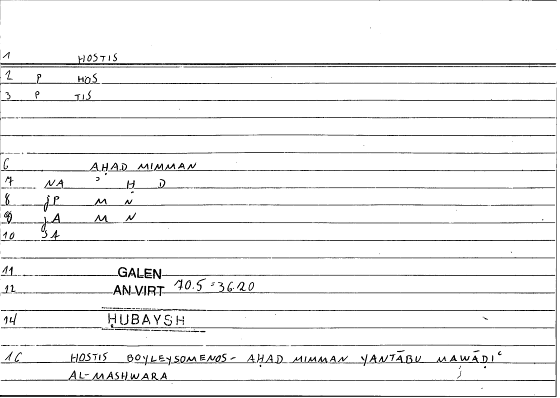 1 HOSTIS
2 P HOS
3 P TIS
6 AḤAD MIMMAN
7 NA ʾ Ḥ D
8 jP M N
9 jA M N
10
11 GALEN
12 AN.VIRT 70.5 = 36.20
14 ḤUBAYSH
16 HOSTIS BOYLEYSOMENOS - AḤAD MIMMAN YANTĀBU MAWĀḌIʿ
AL-MASHWARA